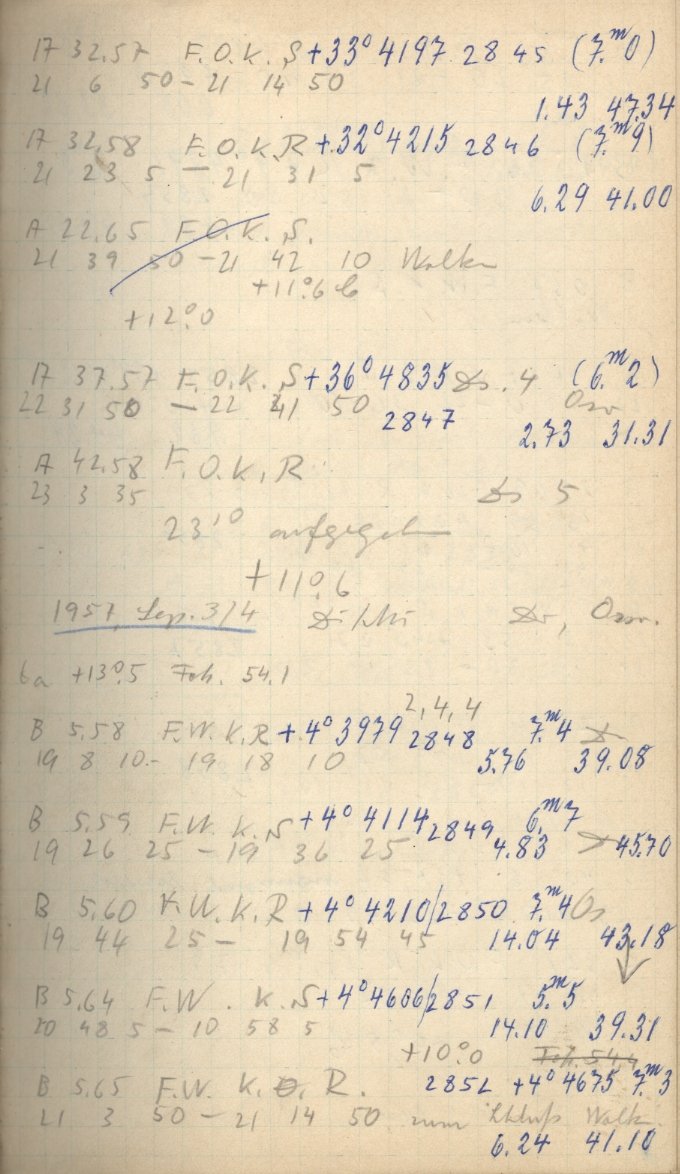 A 32.57 F.O.K.S +33° 4197 2845 (7.ᵐ0)
21 6 50 – 21 14 50
1.43 47.34
A 32.58 F.O.K.R +32° 4215 2846 (7.ᵐ9)
21 23 5 – 21 31 5
6.29 41.00
A 22.65 F.O.K.S.
21 39 50 – 21 42 10 Wolken
+11°.6
+12°.0
A 37.57 F.O.K.S +36° 4835 Ds. 4 (6.ᵐ2)
22 31 50 – 22 41 50 2847
2.73 31.31
A 42.58 F.O.K.R
23 3 35 Ds 5
23,0 aufgegeben
+11°.6
1957 Sep. 3/4
+13°.5 Fok. 54.1
2,4,4
B 5.58 F.W.K.R +4° 3979 2848 7.ᵐ4
19 8 10 – 19 18 10 5.76 39.08
B 5.59 F.W.K.S +4° 4114 2849 6.ᵐ7
19 26 25 – 19 36 25 4.83 45.70
B 5.60 F.W.K.R +4° 4210/2850 7.ᵐ4 Os
19 44 25 – 19 54 45 14.04 43.18
B 5.64 F.W.K.S +4° 4606/2851 5.ᵐ5
20 48 5 – 20 58 5 14.10 39.31
+10°.0 Fok. 54.4
B 5.65 F.W. K.O. R. 2852 +4° 4675 7.ᵐ3
21 3 50 – 21 14 50 zum Schluß Wolken
6.24 41.10